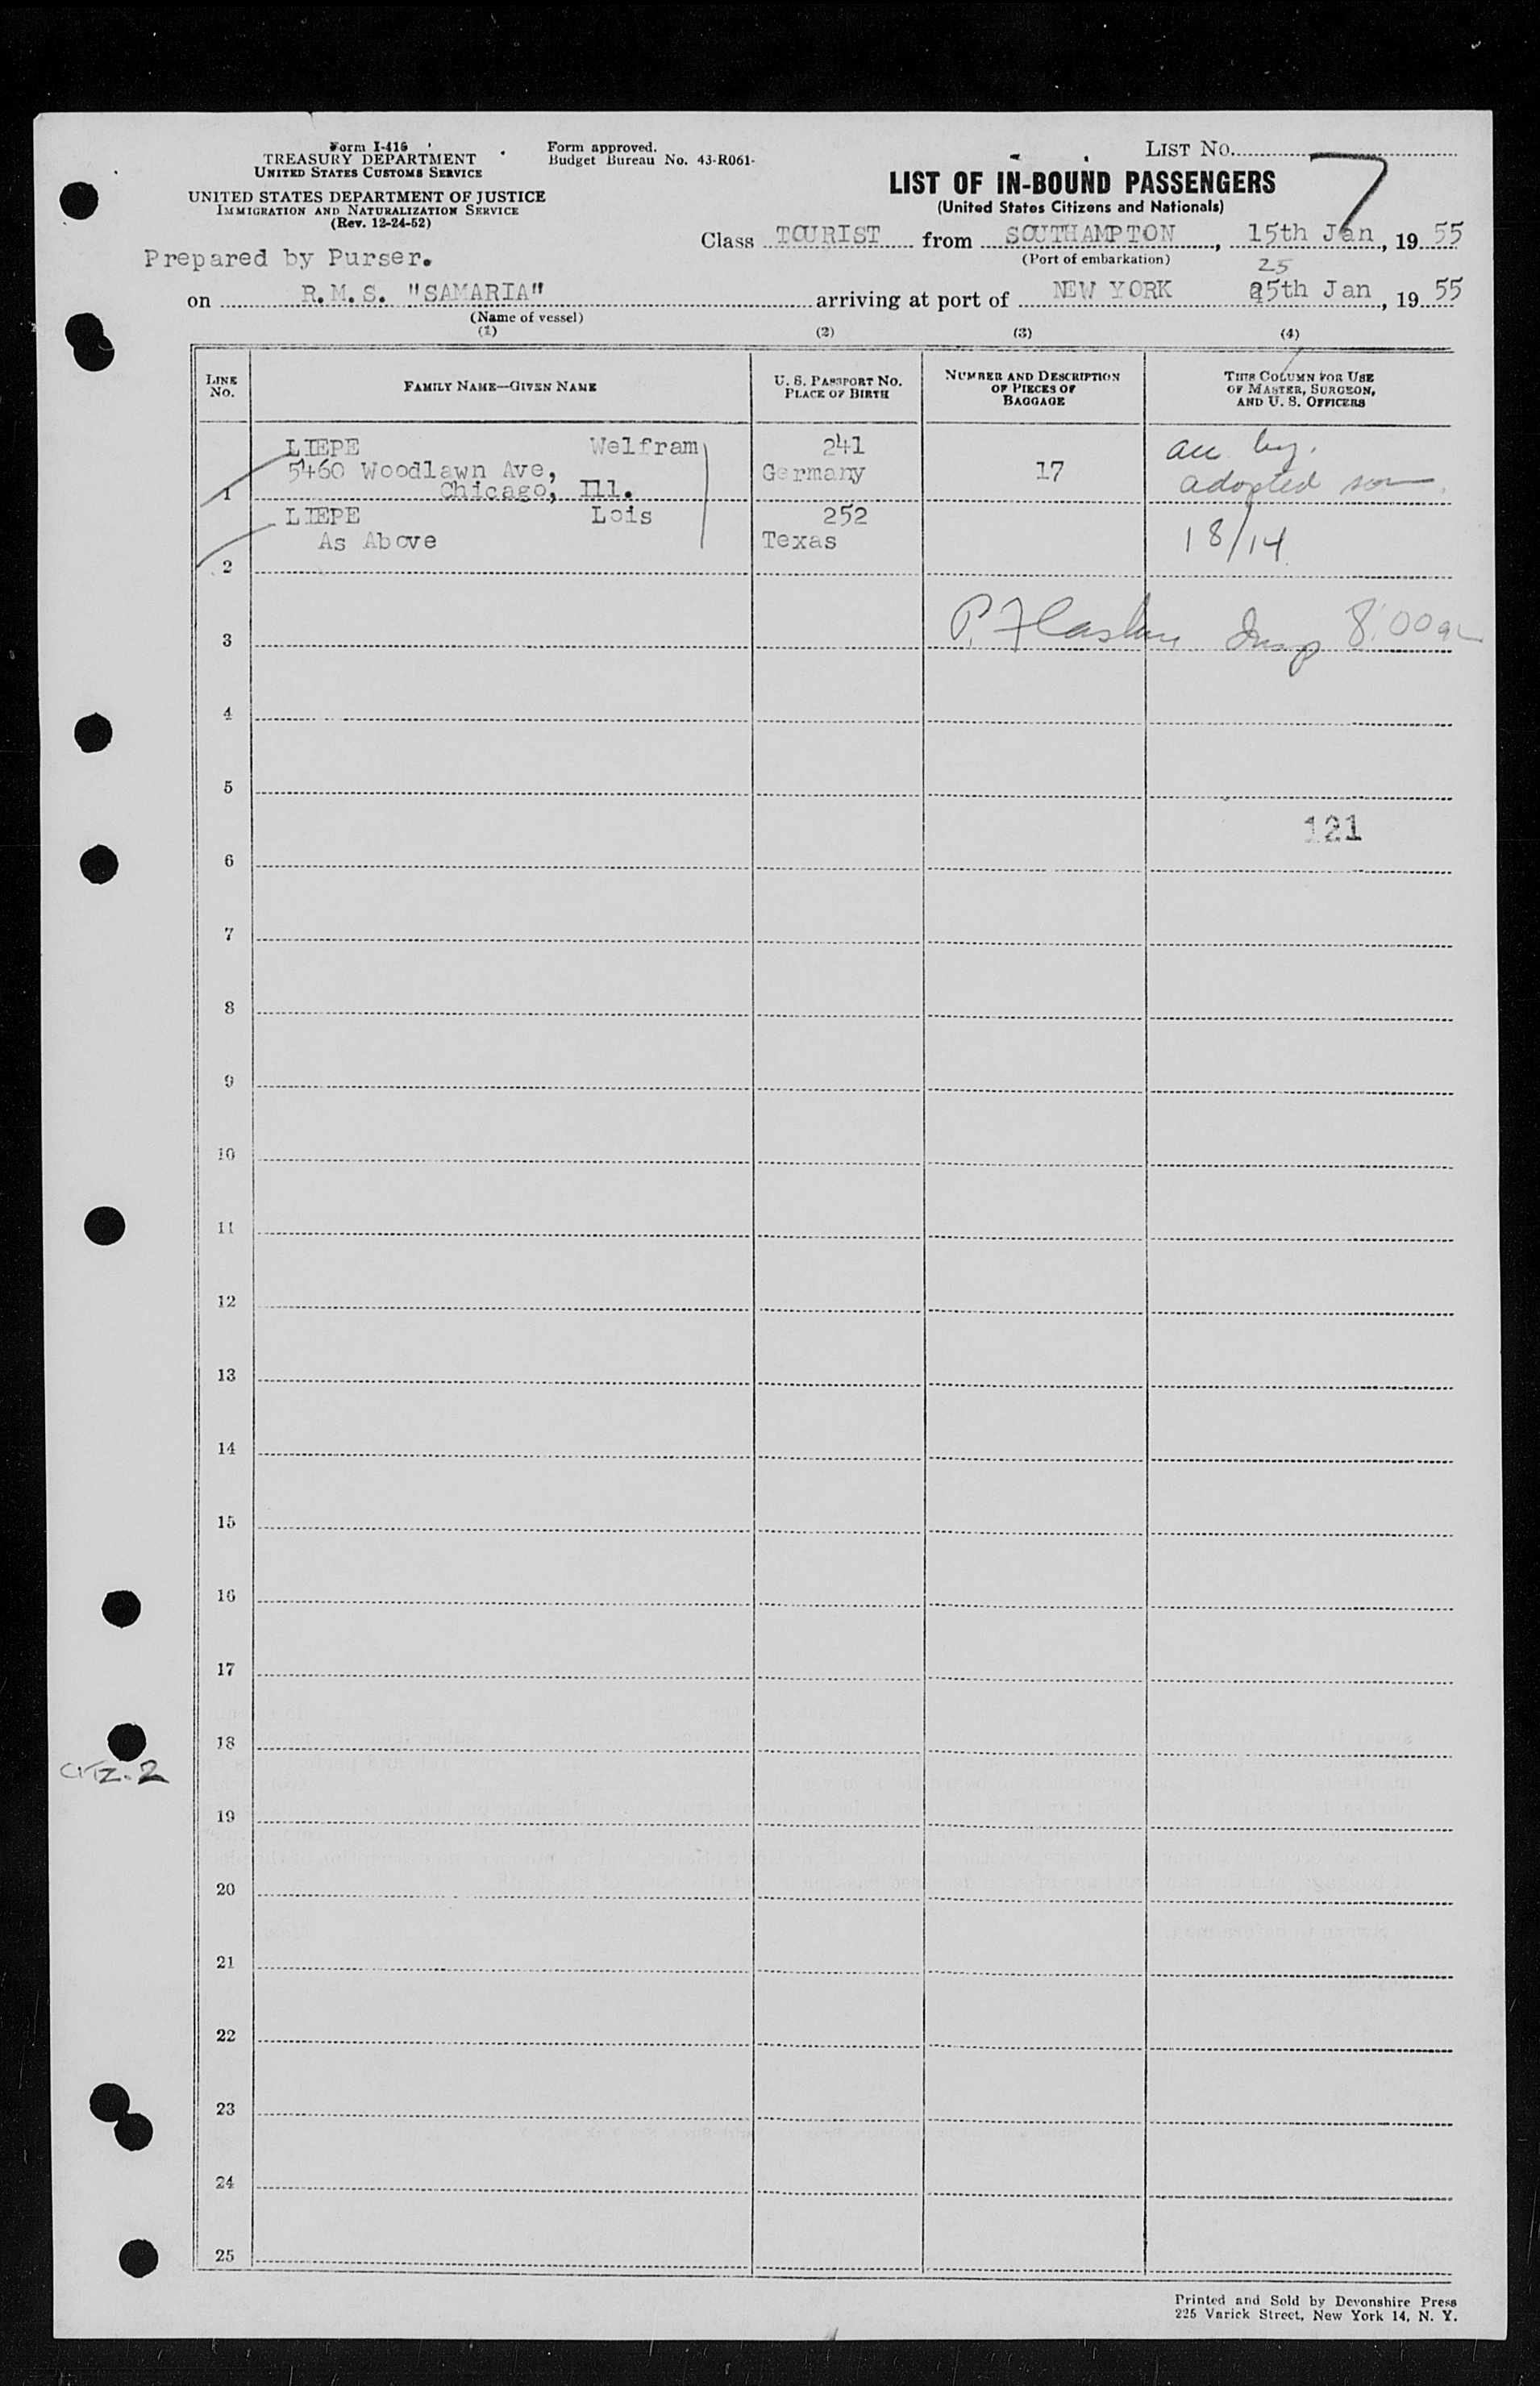 Form I-416
TREASURY DEPARTMENT
UNITED STATES CUSTOMS SERVICE
UNITED STATES DEPARTMENT OF JUSTICE
IMMIGRATION AND NATURALIZATION SERVICE
(Rev. 12-24-52)
Form approved.
Budget Bureau No. 43-R061-
LIST No.
7
LIST OF IN-BOUND PASSENGERS
(United States Citizens and Nationals)
Class TOURIST from SOUTHAMPTON, 15th Jan, 19 55
(Port of embarkation)
Prepared by Purser.
25
on R.M.S. "SAMARIA" arriving at port of NEW YORK 25th Jan, 19 55
(Name of vessel)
(1) (2) (3) (4)
LINE No.
FAMILY NAME—GIVEN NAME
U. S. PASSPORT NO.
PLACE OF BIRTH
NUMBER AND DESCRIPTION
OF PIECES OF
BAGGAGE
THIS COLUMN FOR USE
OF MASTER, SURGEON,
AND U. S. OFFICERS
LIEPE Welfram 241
5460 Woodlawn Ave, Germany 17
1 Chicago, Ill. adopted son
LIEPE Lois 252
As Above Texas 18/14
2
3 P. Insp 8:00
4
5
121
6
7
8
9
10
11
12
13
14
15
16
17
18
CITZ. 2
19
20
21
22
23
24
25
Printed and Sold by Devonshire Press
225 Varick Street, New York 14, N. Y.